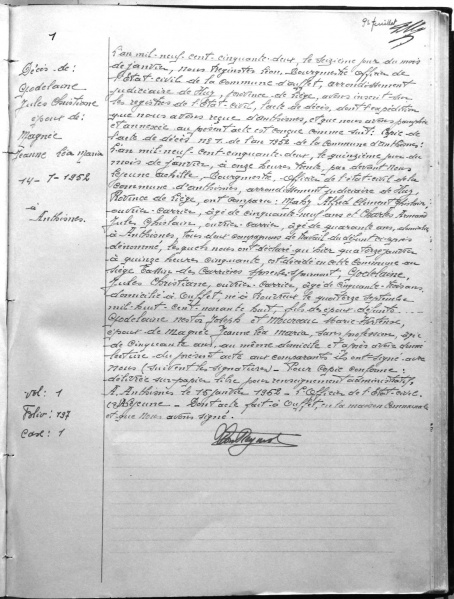 1
Décès de:
Godelaine
Jules Christiane
époux de:
Magnée
Jeanne Léa Maria
14-1-1952
à
Anthisnes.
vol: 1
Folio: 137
Case: 1
L'an mil-neuf-cent-cinquante-deux, le seizième jour du mois
de janvier, nous Bourgmestre officier de
l'Etat-civil de la Commune d'Ouffet, arrondissement
judiciaire de Huy, province de Liège, avons inscrit dans
les registres de l'Etat-civil, l'acte de décès, dont l'expédition
que nous avons reçue d'Anthisnes, et que nous avons
et annexée au présent acte est conçue comme suit: Copie de
l'acte de décès n° 1 de l'an 1952 de la Commune d'Anthisnes:
L'an mil-neuf-cent-cinquante-deux, le quinzième jour du
mois de janvier, à onze heures trente, par devant Nous
Lejeune Bourgmestre Officier de l'état-civil de la
Commune d'Anthisnes, arrondissement judiciaire de Huy,
Province de Liège, ont comparu: Alfred Clément Ghislain,
ouvrier-carrier, âgé de cinquante-neuf ans et Charles Armand
Jules Ghislain, ouvrier-carrier, âgé de quarante ans, domiciliés
à Anthisnes, tous deux compagnons de travail du défunt ci-après
dénommé, lesquels nous ont déclaré qu'hier quatorze janvier
à quinze heures cinquante, est décédé en cette Commune au
siège des Carrières Godelaine,
Jules Christiane, ouvrier-carrier, âgé de cinquante-trois ans,
domicilié à Ouffet, né à le quatorze septembre
mil-huit-cent-nonante-huit, fils des époux défunts
Godelaine Joseph et Marie
époux de Magnée Jeanne Léa Maria, sans profession, âgée
de cinquante ans, au même domicile et après avoir donné
lecture du présent acte aux comparants ils ont signé avec
nous (suivent les signatures) - Pour Copie conforme:
délivrée sur papier libre pour renseignement administratif.
A Anthisnes le 15 janvier 1952 - L'Officier de l'Etat-civil
Lejeune - Dont acte fait à Ouffet, en la maison Communale
et que nous avons signé.